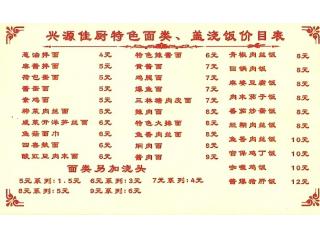 兴源佳厨特色面类、盖浇饭价目表
葱油拌面 4元
麻酱拌面 4元
荷包蛋面 4元
酱蛋面 5元
素鸡面 5元
榨菜肉丝面 5元
咸菜开洋笋丝面 6元
鱼菇面巾 6元
四喜麸面 6元
酸豇豆肉末面 6元
特色辣酱面 6元
黄酱面 7元
鸡腿面 7元
爆鱼面 7元
三林糖肉皮面 7元
辣肉面 8元
特色大排面 8元
鱼香肉丝面 8元
焖肉面 8元
酱肉面 9元
青椒肉丝饭 8元
回锅肉饭 8元
麻婆豆腐饭 8元
肉末茄子饭 8元
番茄炒蛋饭 8元
辣糊肉丝饭 8元
鱼香肉丝饭 8元
宫保鸡丁饭 9元
咖喱鸡饭 9元
酱爆猪肝饭 12元
面类另加浇头
5元系列:1.5元 6元系列:3元 7元系列:4元
8元系列:5元 9元系列:6元